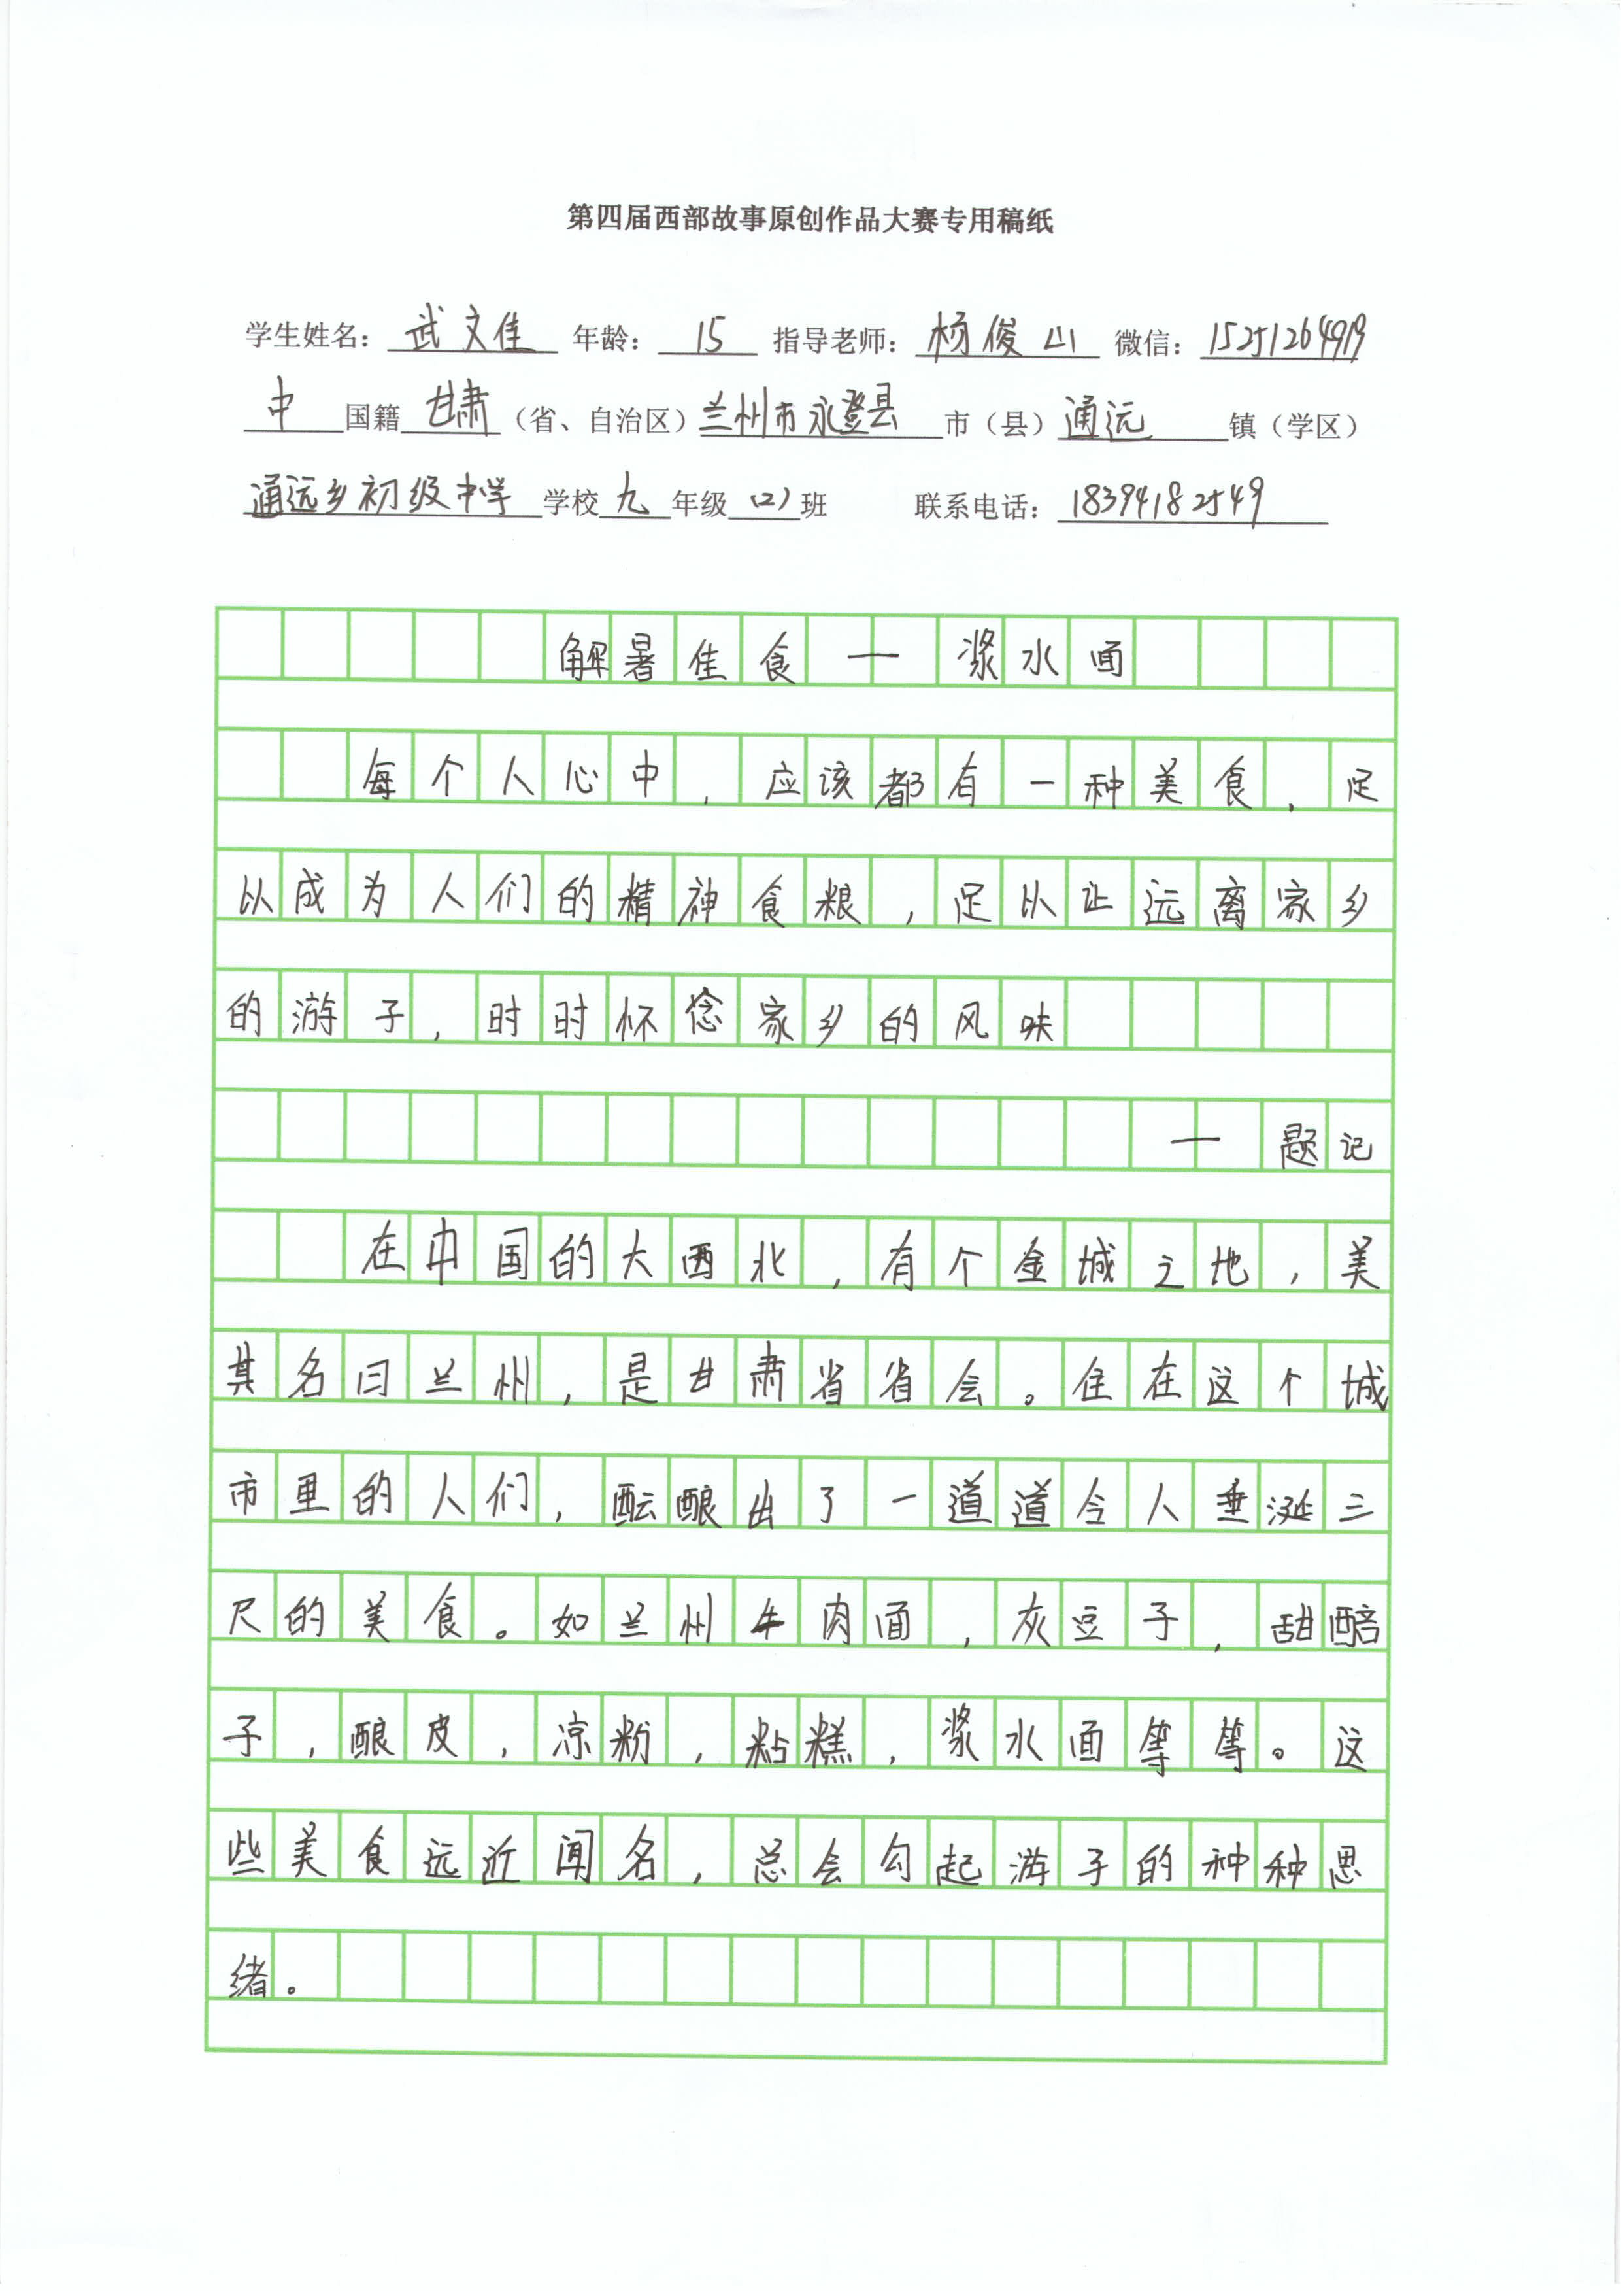 第四届西部故事原创作品大赛专用稿纸
学生姓名：武文佳 年龄：15 指导老师：杨俊山 微信：15251264919
中国籍甘肃（省、自治区）兰州市永登县市（县）通远镇（学区）
通远乡初级中学学校九年级(二)班 联系电话：18394182549
解暑佳食——浆水面
每个人心中，应该都有一种美食，足
以成为人们的精神食粮，足以让远离家乡
的游子，时时怀念家乡的风味
——题记
在中国的大西北，有个金城之地，美
其名曰兰州，是甘肃省省会。住在这个城
市里的人们，酝酿出了一道道令人垂涎三
尺的美食。如兰州牛肉面，灰豆子，甜醅
子，酿皮，凉粉，粘糕，浆水面等等。这
些美食远近闻名，总会勾起游子的种种思
绪。